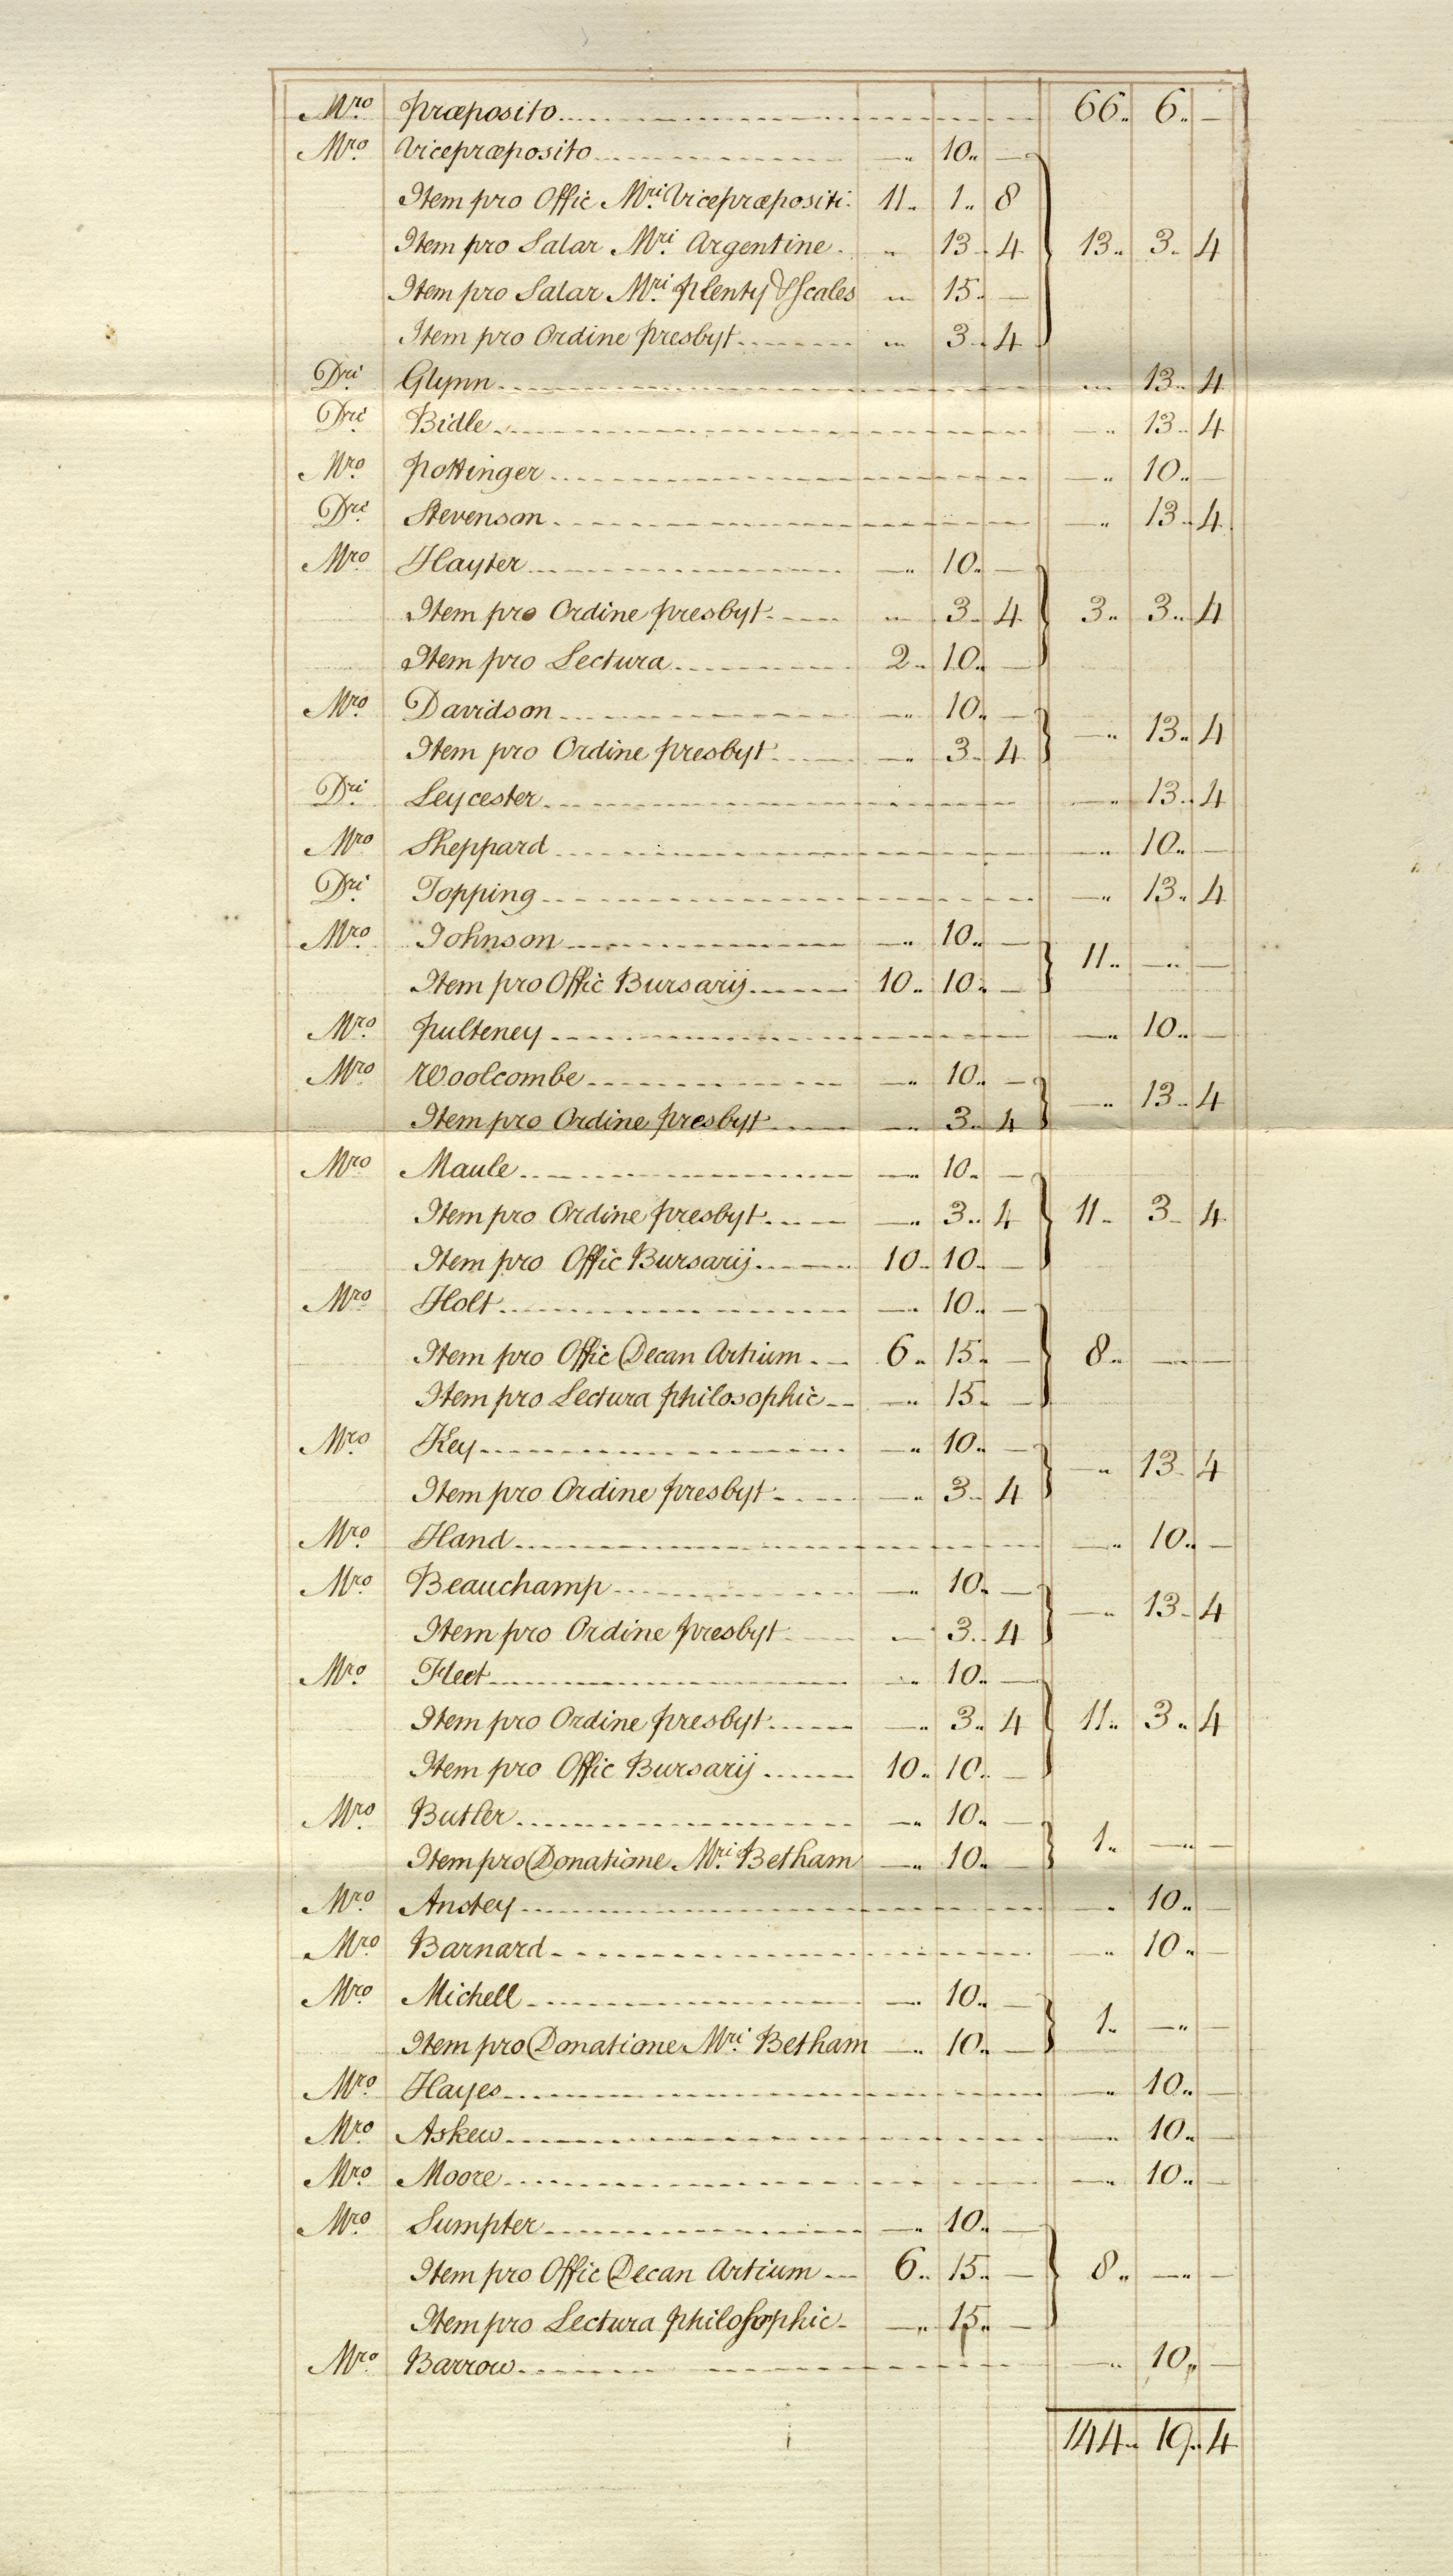 Mro Præposito 66 6 —
Mro Vicepræposito — 10 —
Item pro Offic Mri Vicepræpositi 11 1 8
Item pro Salar Mri Argentine 13 4 13 3 4
Item pro Salar Mri Plenty & Scales 15 —
Item pro Ordine Presbyt 3 4
Dri Glynn 13 4
Dri Bidle — 13 4
Mro Pottinger — 10 —
Dri Stevenson — 13 4
Mro Hayter — 10 —
Item pro Ordine Presbyt 3 4 3 3 4
Item pro Lectura 2 10 —
Mro Davidson — 10 —
— 13 4
Item pro Ordine Presbyt — 3 4
Dri Leycester — 13 4
Mro Sheppard — 10 —
Dri Topping — 13 4
Mro Johnson — 10 —
11 — —
Item pro Offic Bursarij 10 10 —
Mro Pulteney — 10 —
Mro Woolcombe — 10 —
— 13 4
Item pro Ordine Presbyt — 3 4
Mro Maule — 10 —
Item pro Ordine Presbyt — 3 4 11 3 4
Item pro Offic Bursarij 10 10 —
Mro Holt — 10 —
Item pro Offic Decan Artium 6 15 — 8 — —
Item pro Lectura Philosophic — 15 —
Mro Key — 10 —
— 13 4
Item pro Ordine Presbyt — 3 4
Mro Hand — 10 —
Mro Beauchamp — 10 —
— 13 4
Item pro Ordine Presbyt — 3 4
Mro Fleet — 10 —
Item pro Ordine Presbyt — 3 4 11 3 4
Item pro Offic Bursarij 10 10 —
Mro Butler — 10 —
1 — —
Item pro Donatione Mri Betham — 10 —
Mro Anstey — 10 —
Mro Barnard — 10 —
Mro Michell — 10 —
1 — —
Item pro Donatione Mri Betham — 10 —
Mro Hayes — 10 —
Mro Askew — 10 —
Mro Moore — 10 —
Mro Sumpter — 10 —
Item pro Offic Decan Artium 6 15 — 8 — —
Item pro Lectura Philosophic — 15 —
Mro Barrow — 10 —
144 19 4